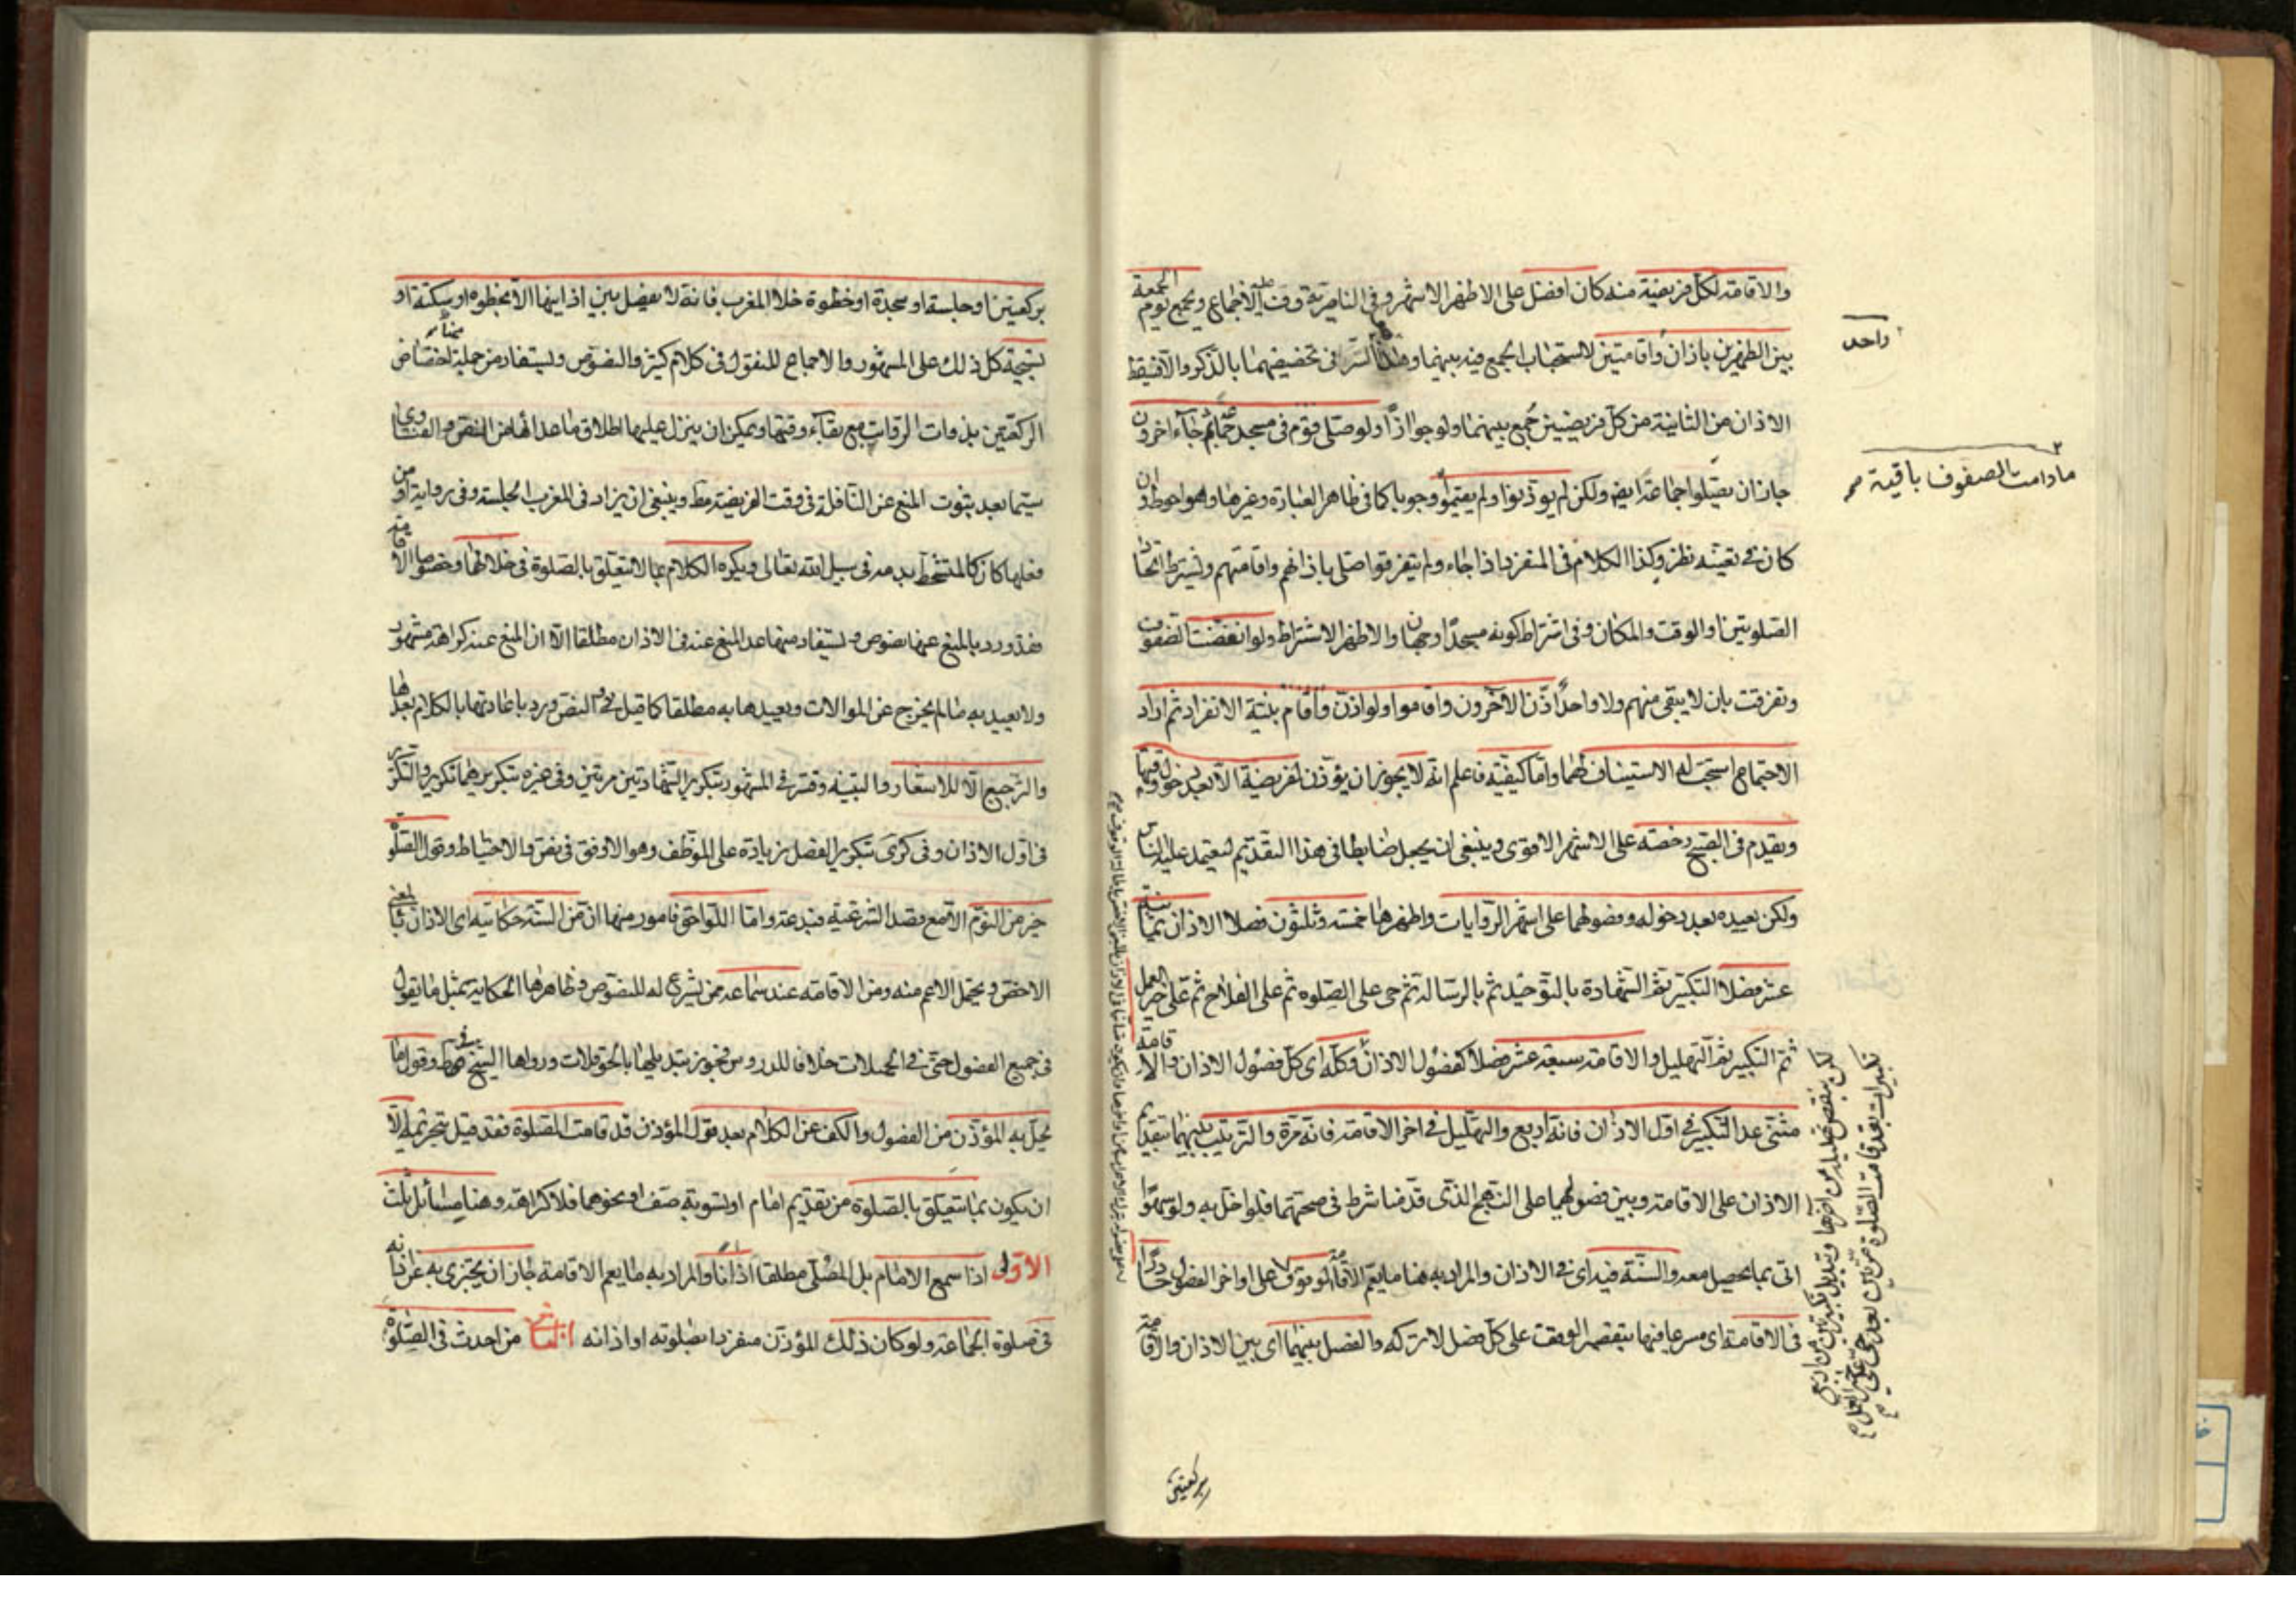 والاقامة لكل فريضة منه كان افضل على الاظهر الاشهر وفى الناصرية وقت عليه الاجماع ويجمع يوم الجمعة
بين الظهرين باذان واقامتين لاستحباب الجمع فيه بينهما وهذا السر فى تخصيصهما بالذكر والا فيسقط
الاذان من الثانية من كل فريضتين جمع بينهما ولو جوازا ولو صلى قوم فى مسجد جماعة ثم جاء اخرون
جاز ان يصلوا جماعة ايضا ولكن لم يؤذنوا ولم يقيموا وجوبا كما فى ظاهر العبارة وغيرها وهو احوط وان
كان فى تعينه نظر وكذا الكلام فى المنفرد اذا جاء ولم يتفرقوا صلى باذانهم واقامتهم ويشترط اتحاد
الصلوتين او الوقت والمكان وفى اشتراط كونه مسجدا وجهان والاظهر الاشتراط ولو انفضت الصفوف
وتفرقت بان لا يبقى منهم ولا واحد اذن الاخرون واقاموا ولو اذن واقام بنية الانفراد ثم اراد
الاجتماع استحب له الاستيناف لهما واما كيفيته فاعلم انه لا يجوز ان يؤذن لفريضة الا بعد دخول وقتها
ويقدم فى الصبح رخصة على الاشهر الاقوى وينبغى ان يجعل ضابطا فى هذا التقديم ليعتمد عليه الناس
ولكن يعيده بعد دخوله وفصولهما على اشهر الروايات واظهرها خمسة وثلثون فصلا الاذان ثمانية
عشر فصلا التكبير ثم الشهادة بالتوحيد ثم بالرسالة ثم حى على الصلوة ثم على الفلاح ثم على خير العمل
ثم التكبير ثم التهليل والاقامة سبعة عشر فصلا كفصول الاذان وكله اى كل فصول الاذان والاقامة
مثنى عدا التكبير فى اول الاذان فانه اربع والتهليل فى اخر الاقامة فانه مرة والترتيب بينهما بتقديم
الاذان على الاقامة وبين فصولهما على النهج الذى قدمنا شرط فى صحتهما فلو اخل به ولو سهوا
اتى بما يحصل معه والسنة فيه اى فى الاذان والمراد به هنا ما يعم الاقامة الوقوف على اواخر الفصول حادرا
فى الاقامة اى مسرعا فيها بتقصير الوقف على كل فصل لا تركه والفصل بينهما اى بين الاذان والاقامة
واحد
مادامت الصفوف باقية صح
لكن بنقص تهليل من اخرها وتبديل تكبيرتين من اربع
تكبيرات بقد قامت الصلوة مرتين بعد حى على خير العمل
بركعتين
بركعتين او جلسة او سجدة او خطوة خلا المغرب فانه لا يفصل بين اذانيها الا بخطوه او سكتة او
تسبيحة كل ذلك على المشهور والاجماع المنقول فى كلام كثير والنصوص ويستفاد من جملة منها اختصاص
الركعتين بذوات الرواتب مع بقاء وقتها ويمكن ان ينزل عليها اطلاق ما عداها من النص والفتاوى
سيما بعد ثبوت المنع عن النافلة فى وقت الفريضة مط وينبغى ان يزاد فى المغرب الجلسة وفى رواية ان من
فعلها كان كالمتشحط بدمه فى سبيل الله تعالى ويكره الكلام بما لا يتعلق بالصلوة فى خلالهما وخصوصا الاقامة
فقد ورد بالمنع عنها نصوص ويستفاد منها عدا المنع عنه فى الاذان مطلقا الا ان المنع عنه كراهة مشهور
ولا يعيد به ما لم يخرج عن الموالات ويعيدها به مطلقا كما قيل فى النص ورد باعادتها بالكلام بعدها
والترجيع الا للاشعار والتقية وفسر فى المشهور بتكرير الشهادتين مرتين وفى غيره بتكريرهما تكرير والتكبير
فى اول الاذان وفى كرى بتكرير الفصل زيادة على الموظف وهو الاوفق فى نفى والاحتياط وقول الصلوة
خير من النوم الا مع قصد الشرعية فبدعة واما اللواحق فامور منها ان من السنة حكايته اى الاذان بالمعنى
الاخص ويحتمل الاعم منه ومن الاقامة عند سماعه ممن يشرع له للنصوص وظاهرها الحكاية بمثل ما يقول
فى جميع الفصول حتى فى الحيعلات خلافا للدروس فجوز تبديلها بالحوقلات ورواها الشيخ فى مبسوط وقول ما
يخل به المؤذن من الفصول والكف عن الكلام بعد قول المؤذن قد قامت الصلوة فقد قيل بتحريمه الا
ان يكون بما يتعلق بالصلوة من تقديم امام او تسوية صف او نحوهما فلا كراهة وهنا مسائل ثلث
الاولى اذا سمع الامام بل المصلى مطلقا اذانا والمراد به ما يعم الاقامة جاز ان يجتزى به عن اذانه
فى صلوة الجماعة ولو كان ذلك المؤذن منفردا بصلوته او اذانه الثانى من احدث فى الصلوة